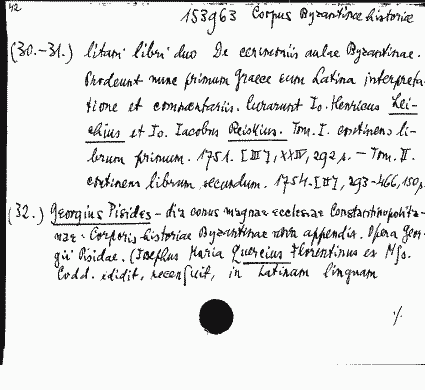 42
153963 Corpus Byzantinae historiae
(30.-31.) litani libri duo De cerimoniis aulae Byzantinae.
Prodeunt nunc primum Graece cum Latina interpreta-
tione et commentariis. Curarunt Io. Henricus Lei-
chius et Io. Iacobus Reiskius. Tom. I. continens li-
brum primum. 1751. [III], XXIV, 292 s. - Tom. II.
continens librum secundum. 1754. [II], 293-466, 150 s.
(32.) Georgius Pisides - diaconus magnae ecclesiae Constantinopolita-
nae - Corporis historiae Byzantinae nova appendix. Opera Geor-
gii Pisidae. (Josephus Maria Quercius Florentinus ex Mss.
Codd. edidit, recensuit, in Latinam linguam
./.